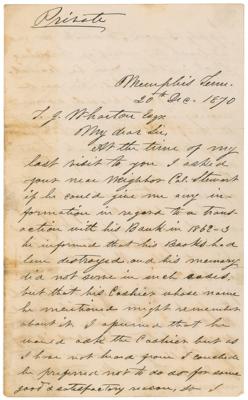 Private
Memphis Tenn.
20th Dec. 1870
T. J. Wharton Esqr.
My dear Sir,
At the time of my
last visit to you I asked
your near Neighbor Col. Stewart
if he could give me any in-
formation in regard to a trans-
action with his Bank in 1862-3
he informed that his Books had
been destroyed and his memory
did not serve in such cases.
but that his Cashier whose name
he mentioned might remember
about it. I
that he
would ask the Cashier but as
I have not heard from I conclude
he preferred not to do so for some
good & satisfactory reason, so I